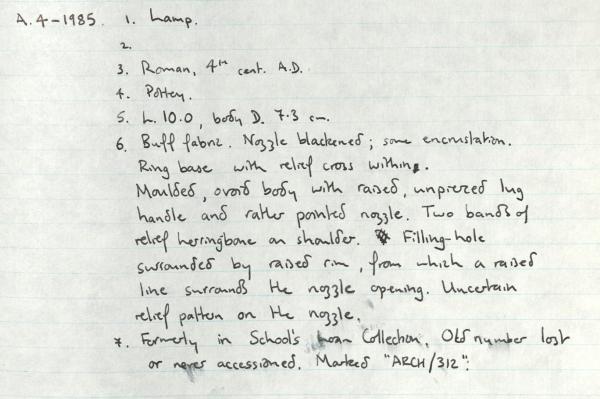 A.4-1985. 1. Lamp.
2.
3. Roman, 4th cent. A.D.
4. Pottery.
5. L. 10.0, body D. 7.3 cm.
6. Buff fabric. Nozzle blackened; some encrustation.
Ring base with relief cross within.
Moulded, ovoid body with raised, unpierced lug
handle and rather pointed nozzle. Two bands of
relief herringbone on shoulder. Filling-hole
surrounded by raised rim, from which a raised
line surrounds the nozzle opening. Uncertain
relief pattern on the nozzle.
7. Formerly in School's Loan Collection. Old number lost
or never accessioned. Marked "ARCH/312".